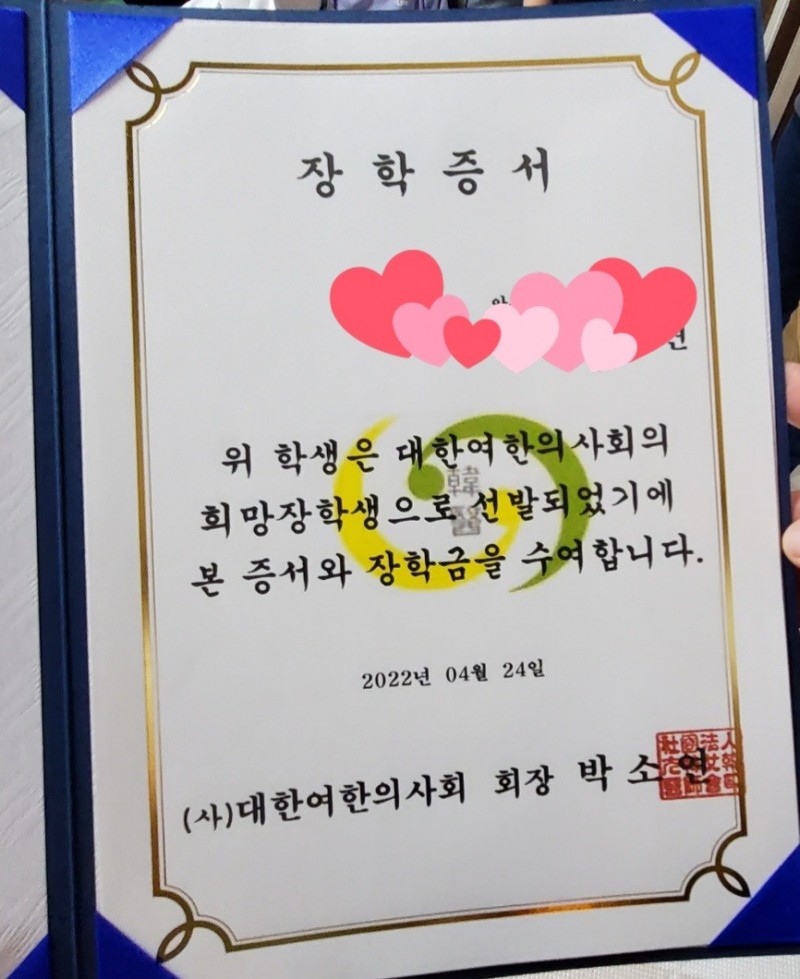 장 학 증 서
위 학생은 대한여한의사회의
희망장학생으로 선발되었기에
본 증서와 장학금을 수여합니다.
2022년 04월 24일
(사)대한여한의사회 회장 박 소 연